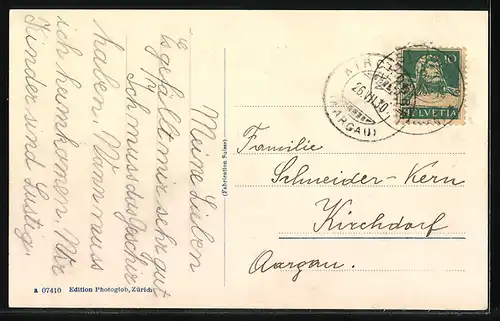 Meine Lieben
Es gefällt mir sehr gut
Ich muss das Geschir
haben. Wann muss
ich heimkomen. Wir
Kinder sind Lustig.
(Fabrication Suisse)
a 07410 Edition Photoglob, Zürich
26.VII.30
(AARGAU)
10
HELVETIA
Familie
Schneider-Kern
Kirchdorf
Aargau.